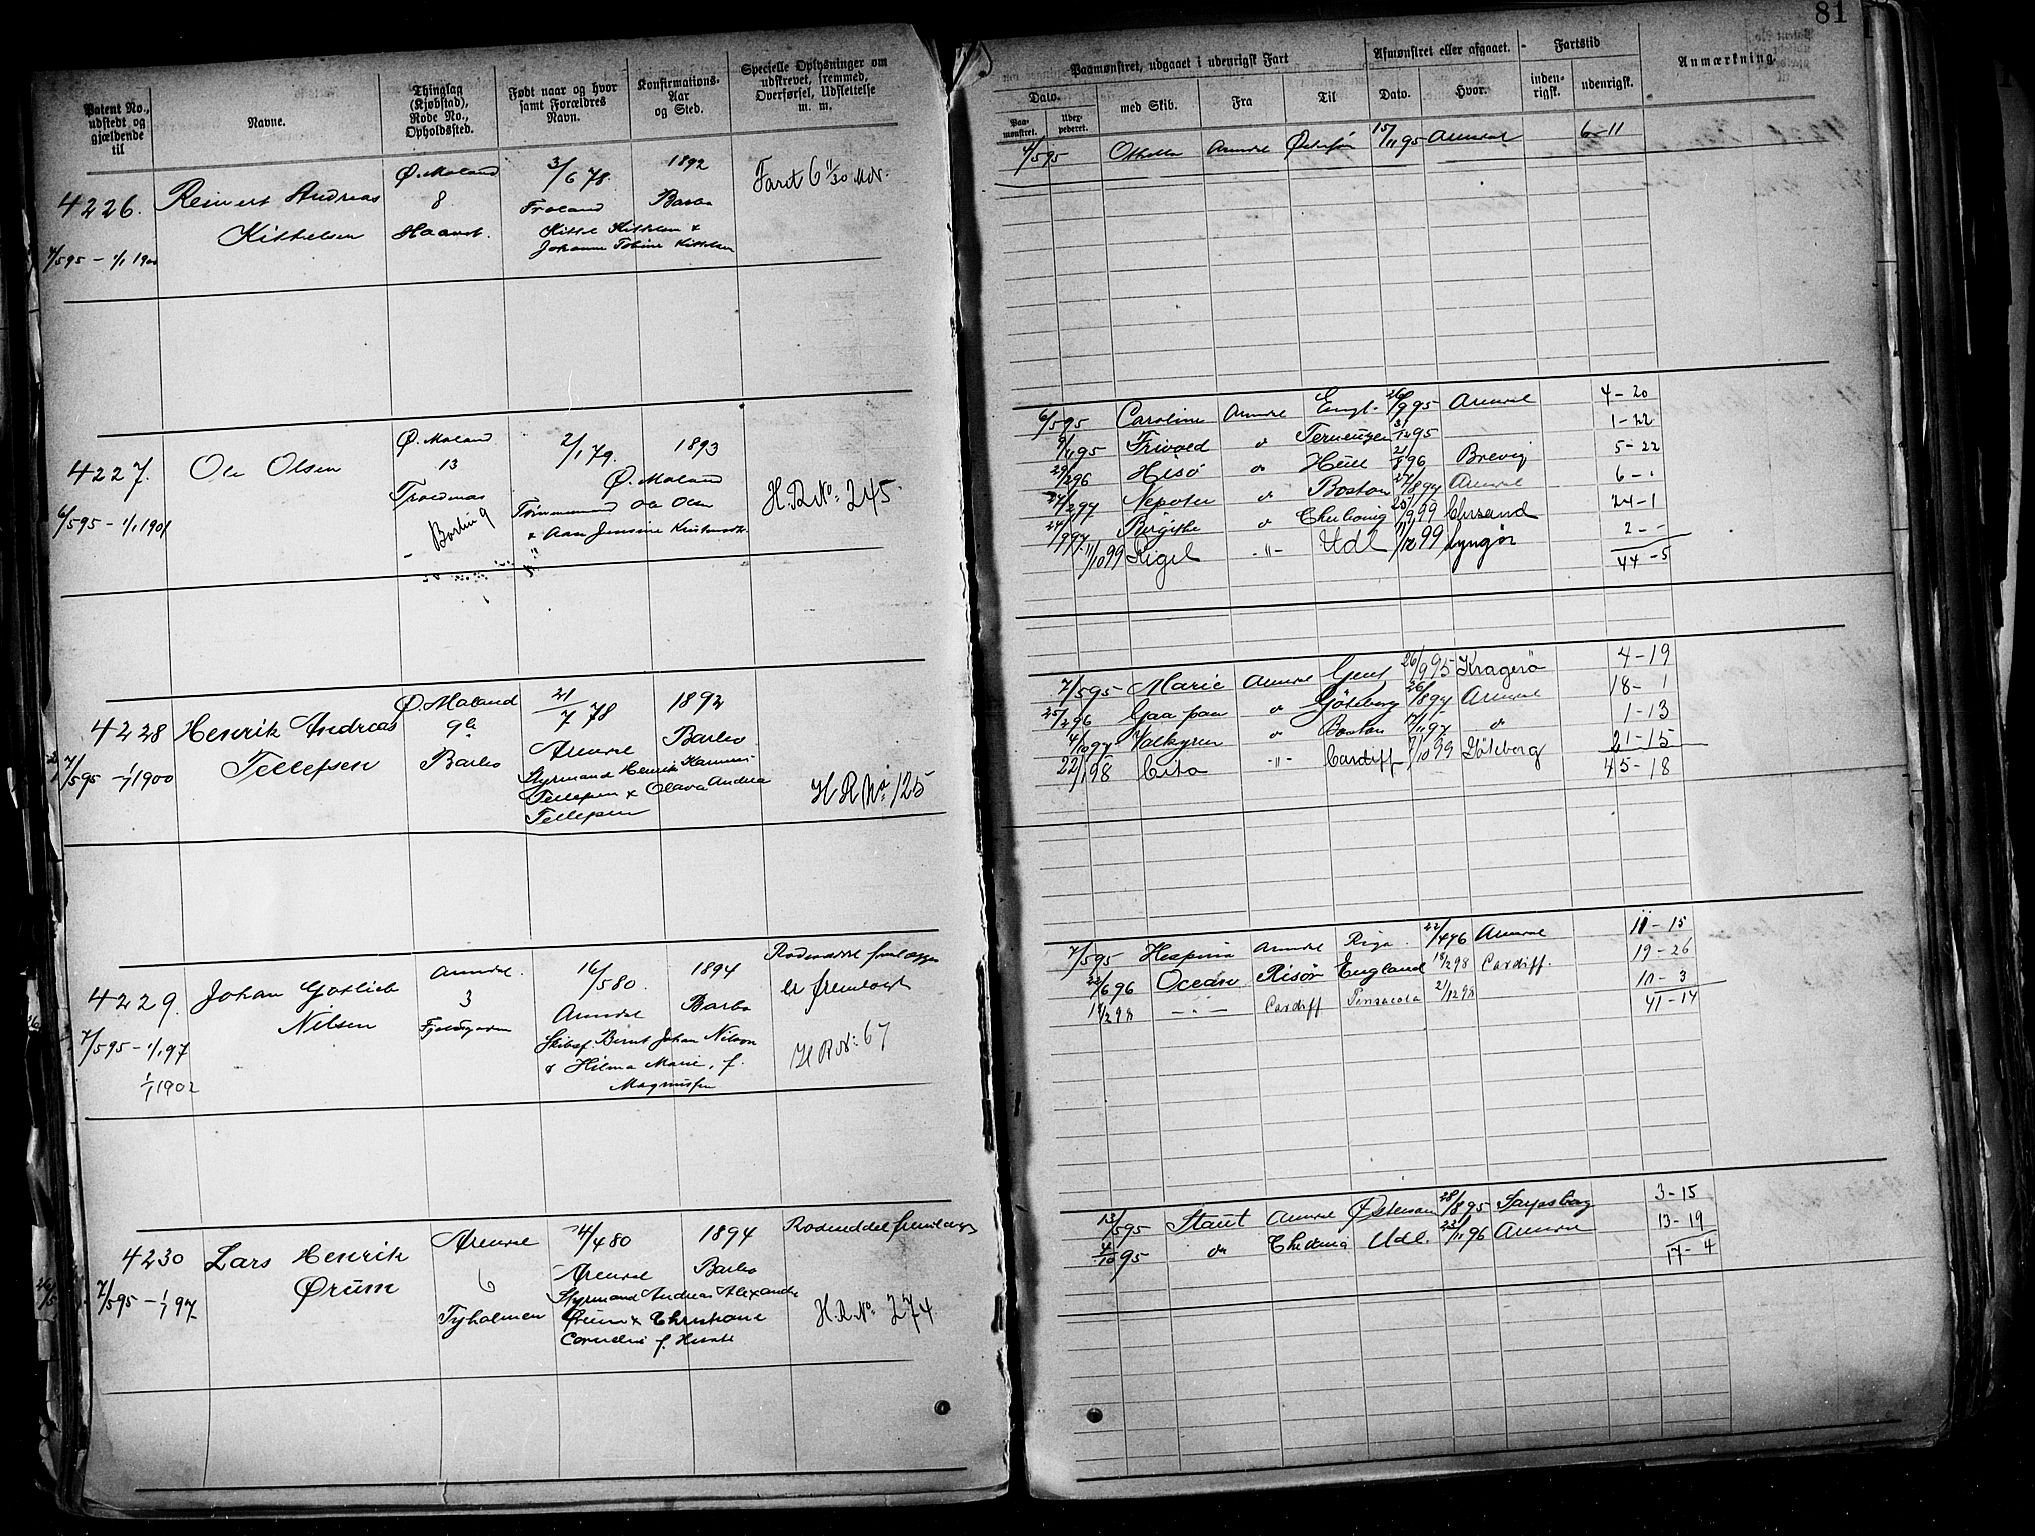 81
Patent No., udstedt og gjældende til
Navne.
Thinglag (Kjøbstad), Rode No., Opholdssted.
Født naar og hvor samt Forældres Navn.
Konfirmations-Aar og Sted.
Specielle Oplysninger om udskrevet, fremmed, Overførsel, Udslettelse m. m.
Paamønstret, udgaaet i udenrigsk Fart
Afmønstret eller afgaaet.
Fartstid
Anmærkning.
Dato.
Paamønstret.
Udexpederet.
med Skib.
Fra
Til
Dato.
Hvor.
indenrigsk.
udenrigsk.
4226.
7/5 95 - 1/1 1900
Reinert Andreas
Kittelsen
Ø. Moland
8
3/6 78.
Froland
Kittel Kittelsen &
Johanne Tobine Kittelsen
1892
Barbo
Faret 6 11/30 Mdr.
4/5 95 Othello Arendal Østersjøen 15/11 95 Arendal 6-11
4227.
6/5 95 - 1/1 1901
Ole Olsen
Ø. Moland
13
2/1 79.
1893
Ø. Moland
Tømmermand Ole Olsen
H.R.No. 245.
6/5 95 Caroline Arendal Engl. 26/9 95 Arendal 4-20
9/11 95 Frivold do 95 1-22
29/2 96 Hisø do Hull 21/8 96 Brevig 5-22
24/2 97 do Boston 27/8 97 Arendal 6-
24/9 97 Birgitte do 99 Chrsand 24-1
11/10 99 Rigel -"- Udl /12 99 Lyngør 2--
44-5
4228
7/5 95 - 1/1 1900
Henrik Andreas
Tellefsen
Ø. Moland
9a
Barbo
21/7 78
Arendal
Styrmand Henrik
Tellefsen & Olava Andrea
Tellefsen
1892
Barbo
H R No 125
7/5 95 Marie Arendal Gent 26/9 95 Kragerø 4-19
25/2 96 Gaa paa do Göteborg 26/8 97 Arendal 18-1
4/10 97 Valkyrien do Boston 17/11 97 do 1-13
22/1 98 Cito -"- Cardiff 7/10 99 Göteborg 21-15
45-18
4229.
7/5 95 - 1/1 97
1/1 1902
Johan Gotlieb
Nilsen
Arendal.
3
16/5 80.
Arendal
Skibsf. Bernt Johan Nilsen
& Hilma Marie, f.
Magnussen
1894
Barbo
er fremlagt
H R No: 67
7/5 95 Hesperia Arendal Riga. 22/4 96 Arendal 11-15
22/6 96 Ocean Risør England 18/2 98 Cardiff. 19-26
19/2 98 -"- Cardiff Pensacola 21/12 98 10-3
41-14
4230
7/5 95 - 1/1 97
Lars Henrik
Ørum
Arendal
6
Tyholmen
4/4 80
Arendal
Styrmand Andreas Alexander
Ørum & Christiane
Cornelia f.
1894
Barbo
Rodeseddel fremlægges
H.R.No. 274
13/5 95 Staut Arendal Østersøen 28/8 95 Sarpsborg 3-15
4/10 95 do Chrania Udl. 23/11 96 Arendal 13-19
17-4